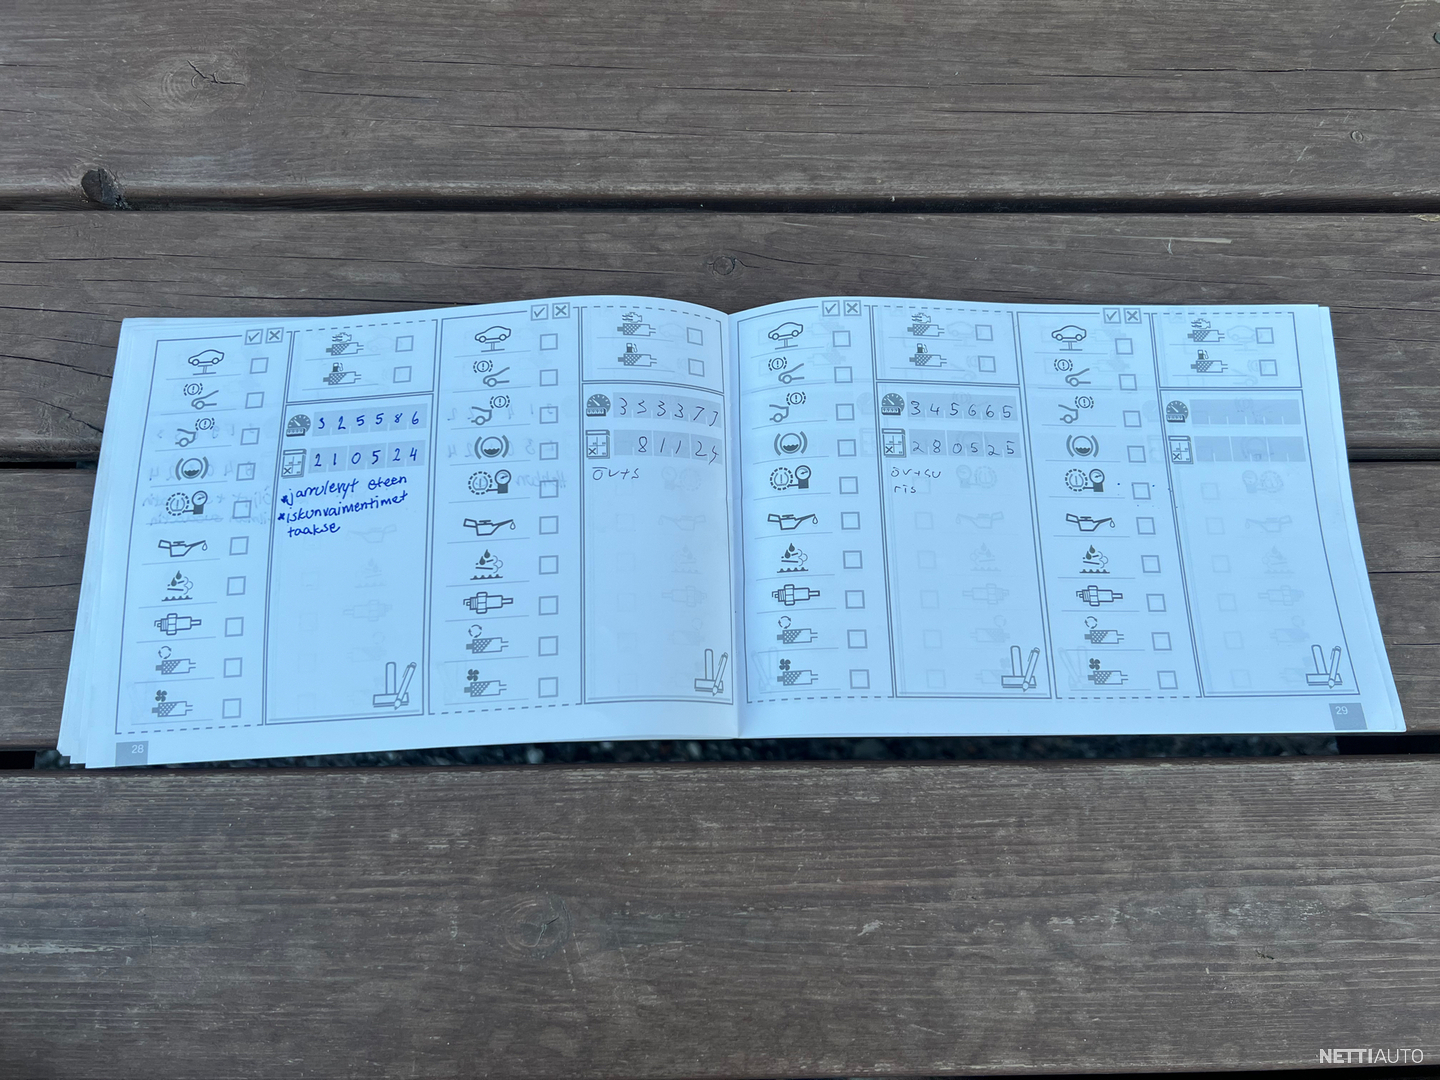 325586
210524
*jarrulevyt eteen
*iskunvaimentimet
taakse
353373
81124
ÖV+S
345665
280525
ÖV+SU
RTS
28
29
NETTIAUTO